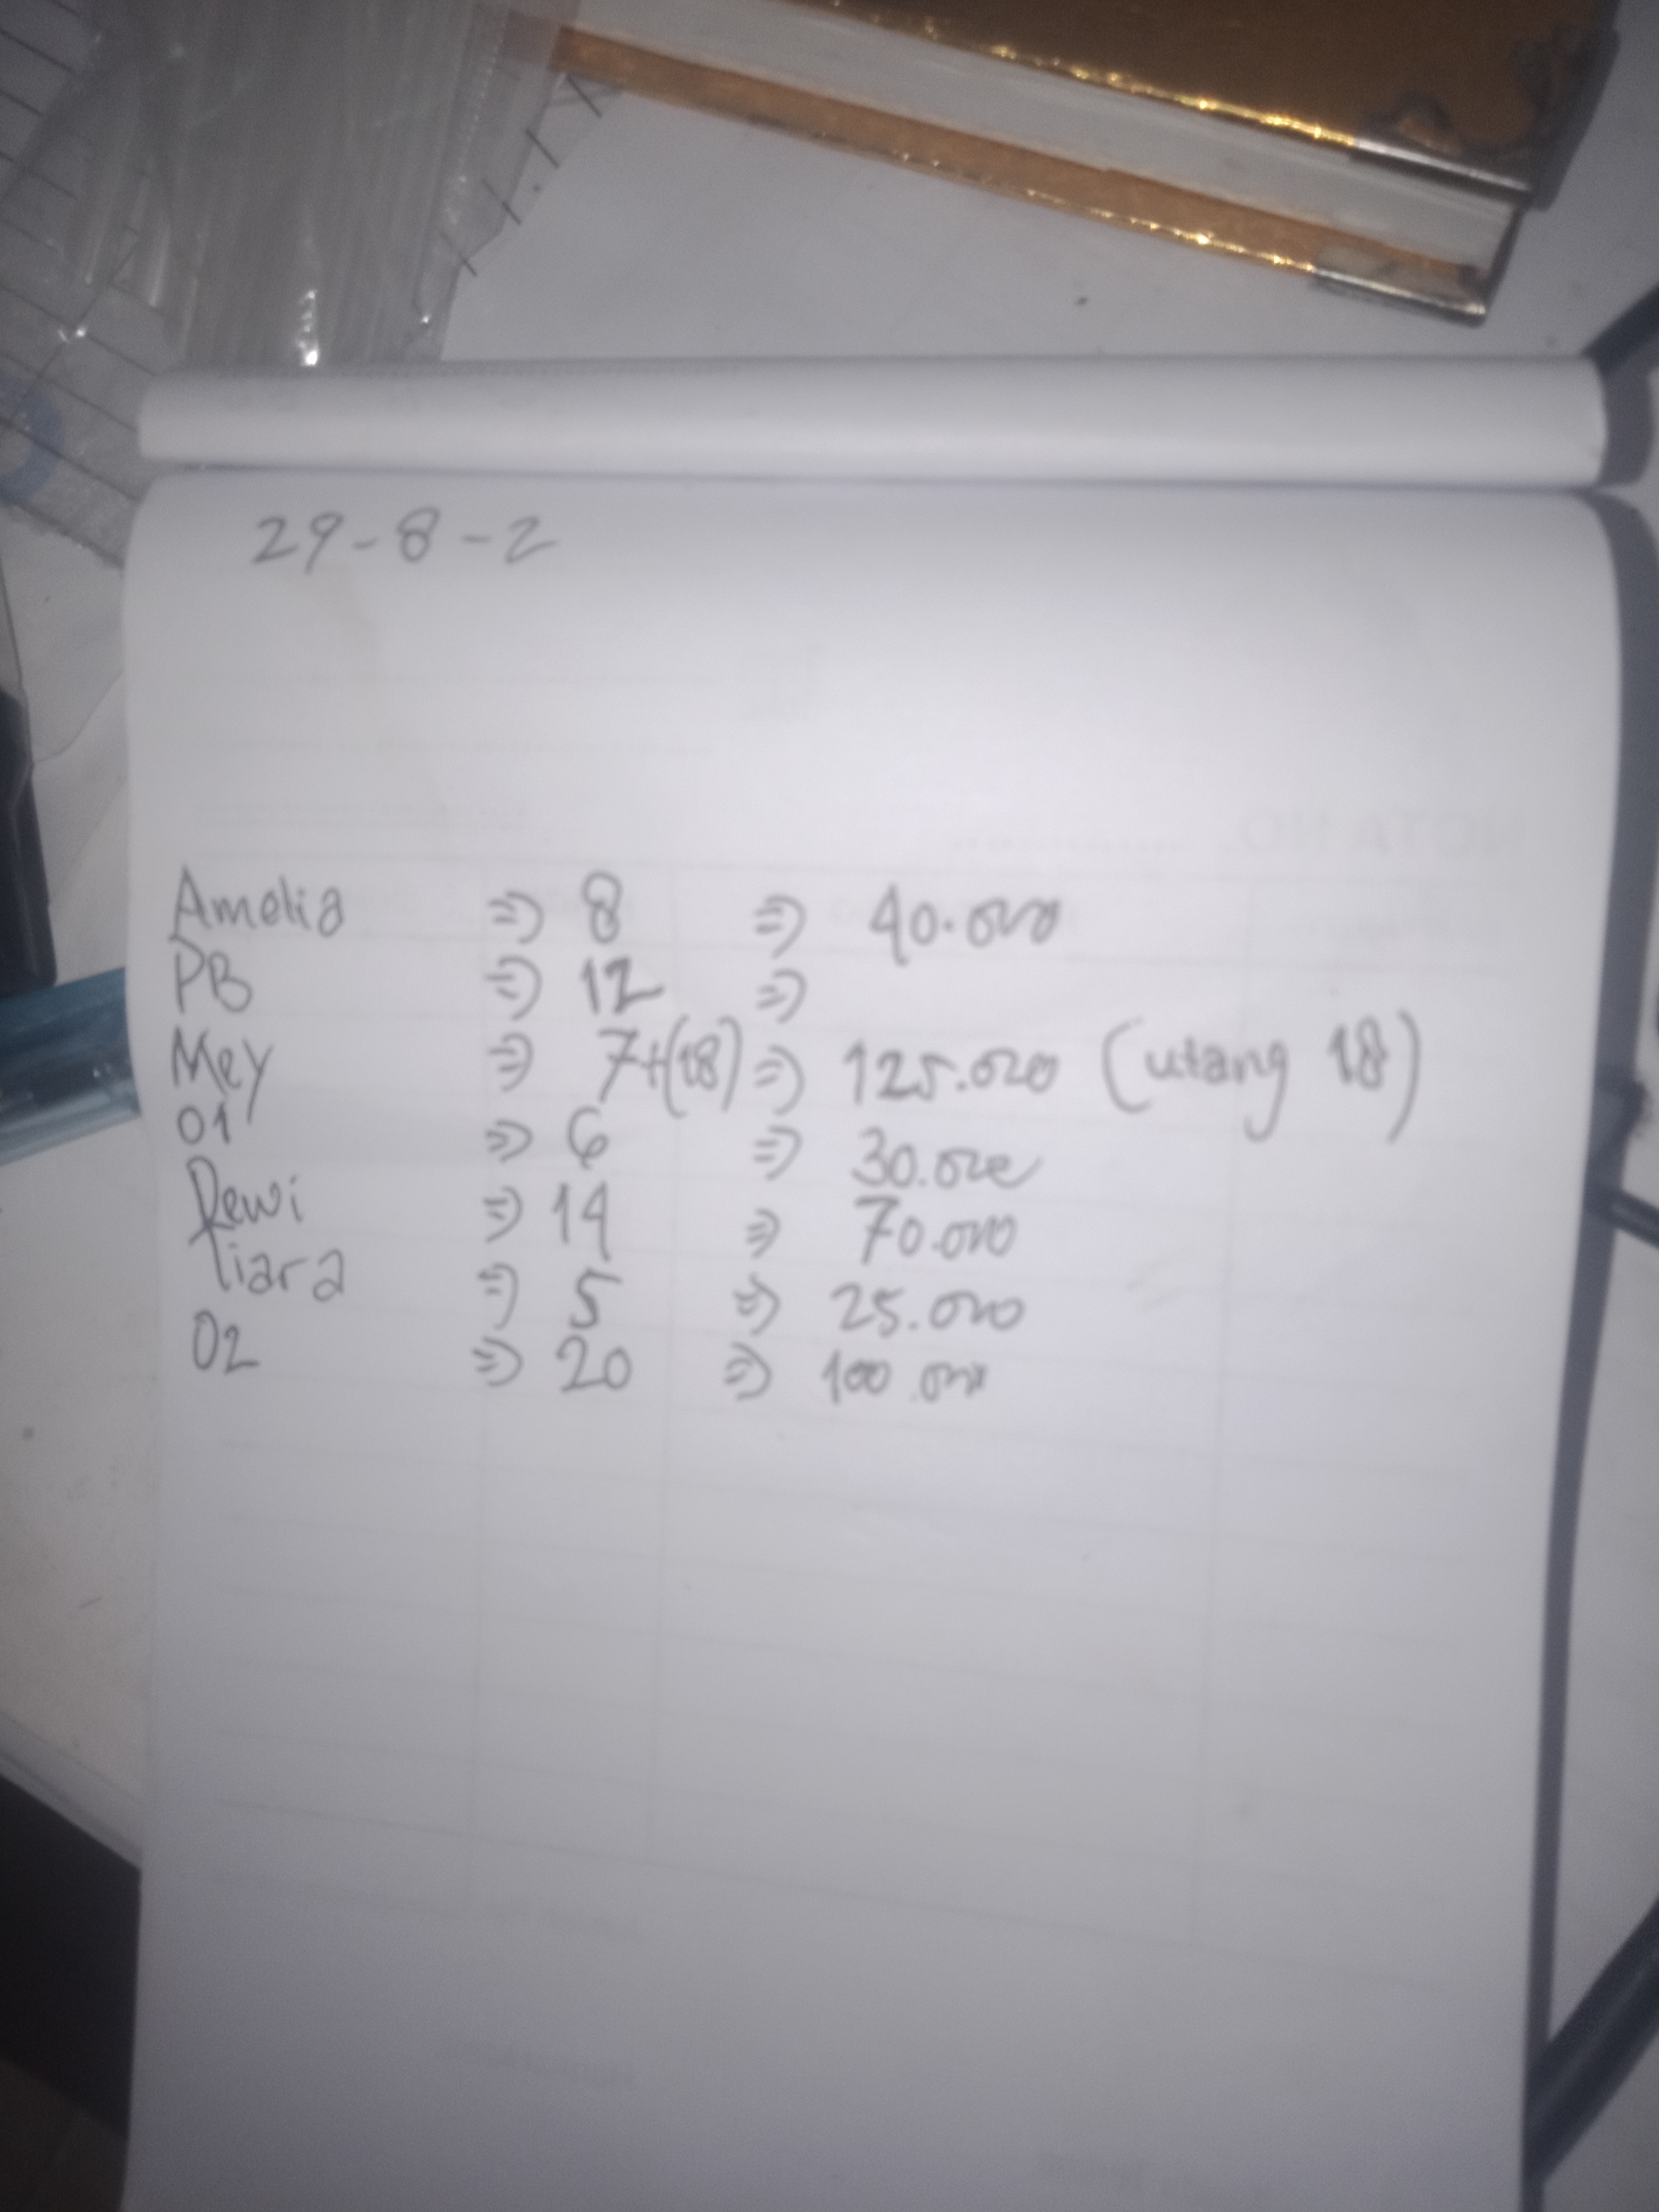 29-8-2
NOTA NO.
Amelia => 8 => 40.000
PB => 12 =>
Mey => 7+(18) => 125.000 (utang 18)
01 => 6 => 30.000
Dewi => 14 => 70.000
Tiara => 5 => 25.000
02 => 20 => 100.000